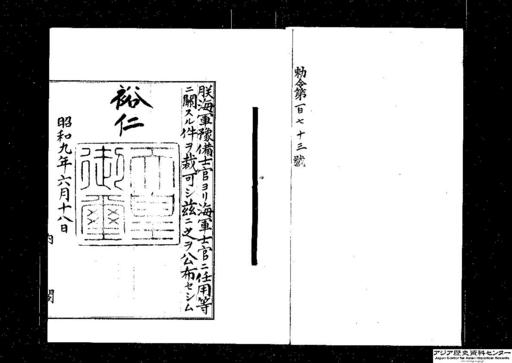 勅令第百七十三號
朕海軍豫備士官ヨリ海軍士官ニ任用等
ニ關スル件ヲ裁可シ茲ニ之ヲ公布セシム
裕仁
天皇御璽
昭和九年六月十八日
内閣
アジア歴史資料センター
Japan Center for Asian Historical Records